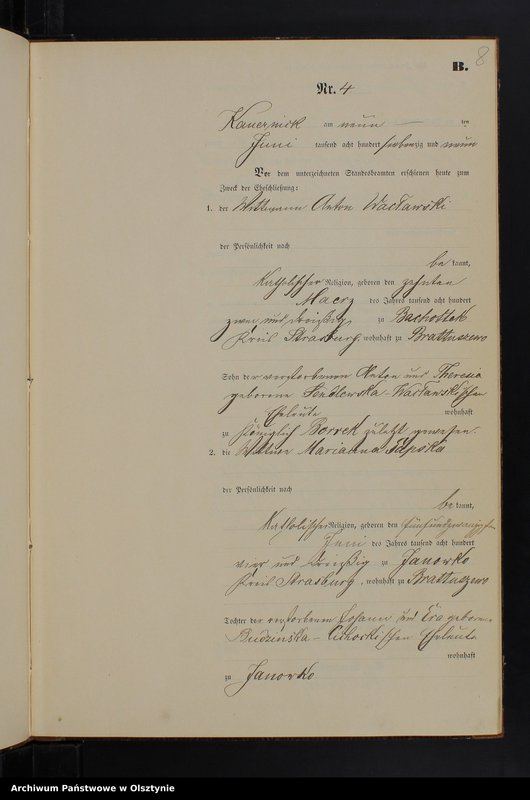 B. 8
Nr. 4
Kauernick am neun ten
Juni tausend acht hundert siebenzig und neun
Vor dem unterzeichneten Standesbeamten erschienen heute zum
Zweck der Eheschließung:
1. der Wittmann Anton Wacławski
der Persönlichkeit nach
be kannt,
Katholischer Religion, geboren den zehnten
Maerz des Jahres tausend acht hundert
zwei und dreißig zu Bachottek
Kreis Strasburg, wohnhaft zu Brattuszewo
Sohn der verstorbenen Anton und Theresia
geborene Sendlewska-Wacławskischen
Eheleute wohnhaft
zu Königlich Borrek zuletzt gewesen.
2. die Wittwe Marianna
der Persönlichkeit nach
be kannt,
Katholischer Religion, geboren den fünfundzwanzigsten
Juni des Jahres tausend acht hundert
vier und dreißig zu Janowko
Kreis Strasburg, wohnhaft zu Brattuszewo
Tochter der verstorbenen Johann und Eva geborene
Budzinska-Cichockischen Eheleute
wohnhaft
zu Janowko
Archiwum Państwowe w Olsztynie